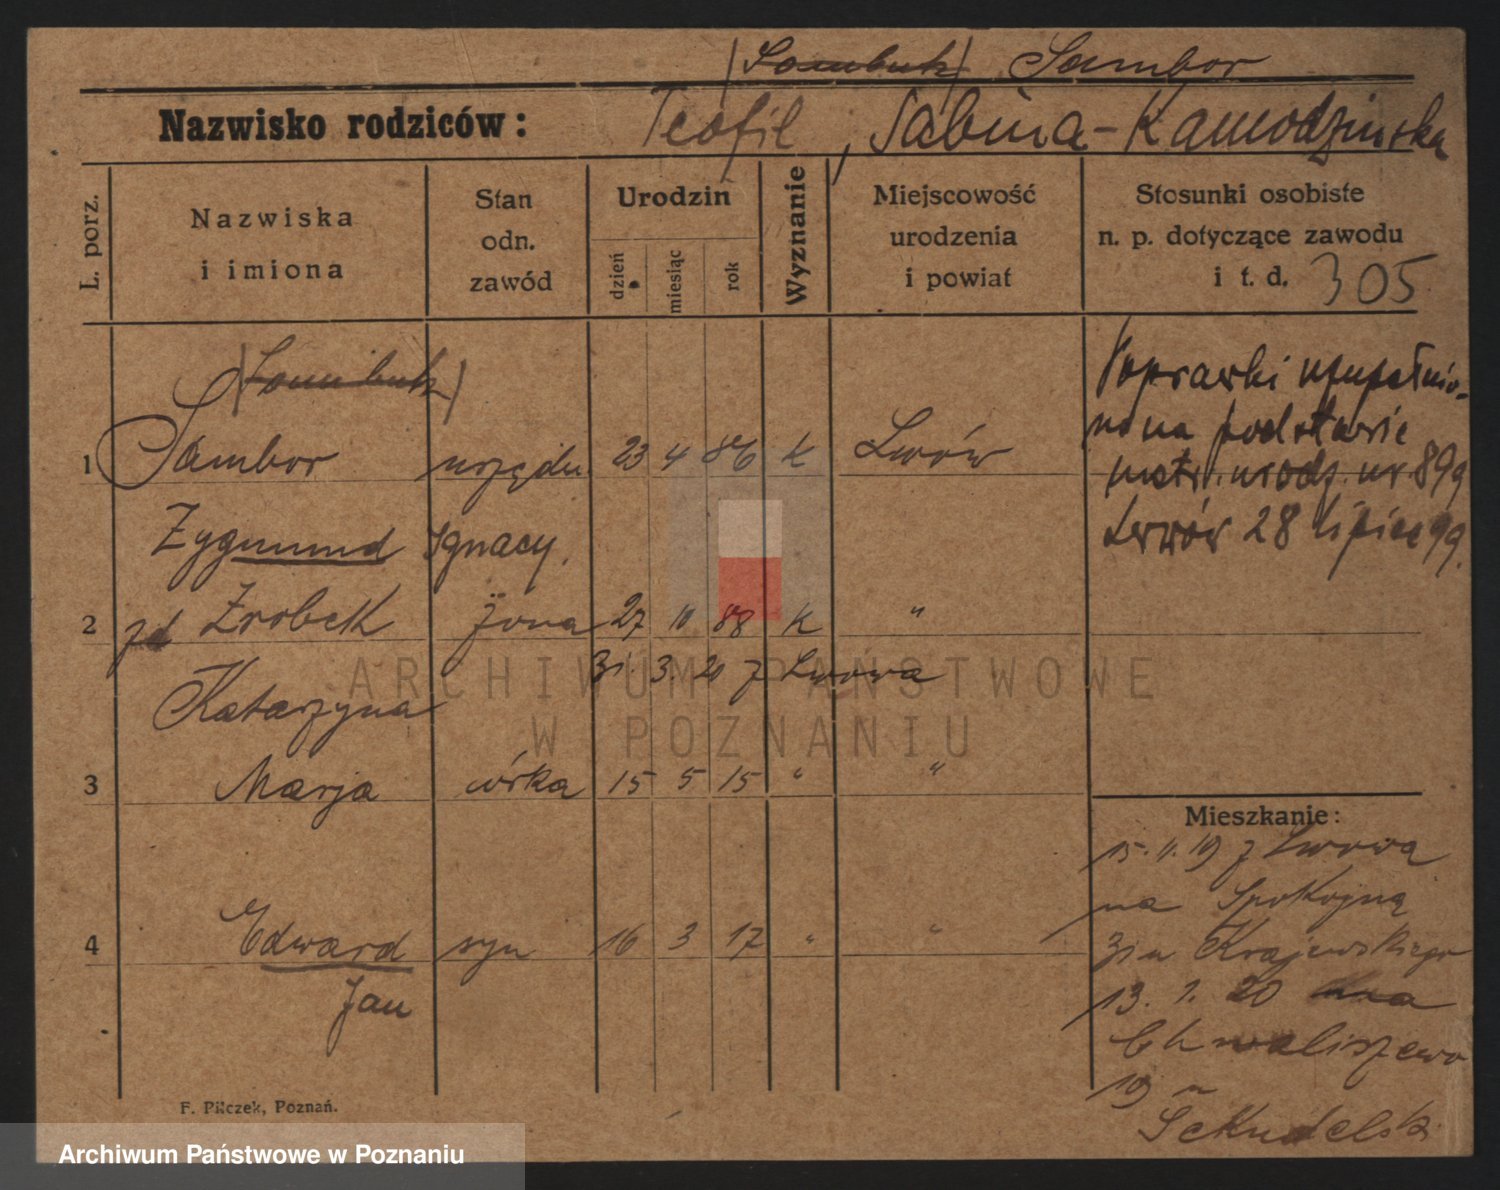 (Sambuk) Sambor
Nazwisko rodziców: Teofil, Sabina-Kamodzińska
L. porz.
Nazwiska
i imiona
Stan
odn.
zawód
Urodzin
dzień
miesiąc
rok
Wyznanie
Miejscowość
urodzenia
i powiat
Stosunki osobiste
n. p. dotyczące zawodu
i t. d. 305
(Sambuk)
1 Sambor urzędn. 23 4 86 k Lwów
Zygmund Ignacy.
2 zd Zrobek żona 27 10 88 k "
31. 3. 20 z Lwowa
Katarzyna
3 Marja córka 15 5 15 " "
4 Edward syn 16 3 17 " "
Jan
Poprawki uzupełnio-
no na podstawie
metr. urodz. nr 899
Lwów 28 lipiec 99.
Mieszkanie:
15.1.19 z Lwowa
na Spokojną
31 u Krajewskiego
13. 1. 20 na
Chwaliszewo
19 u
F. Pilczek, Poznań.
ARCHIWUM PAŃSTWOWE
W POZNANIU
Archiwum Państwowe w Poznaniu